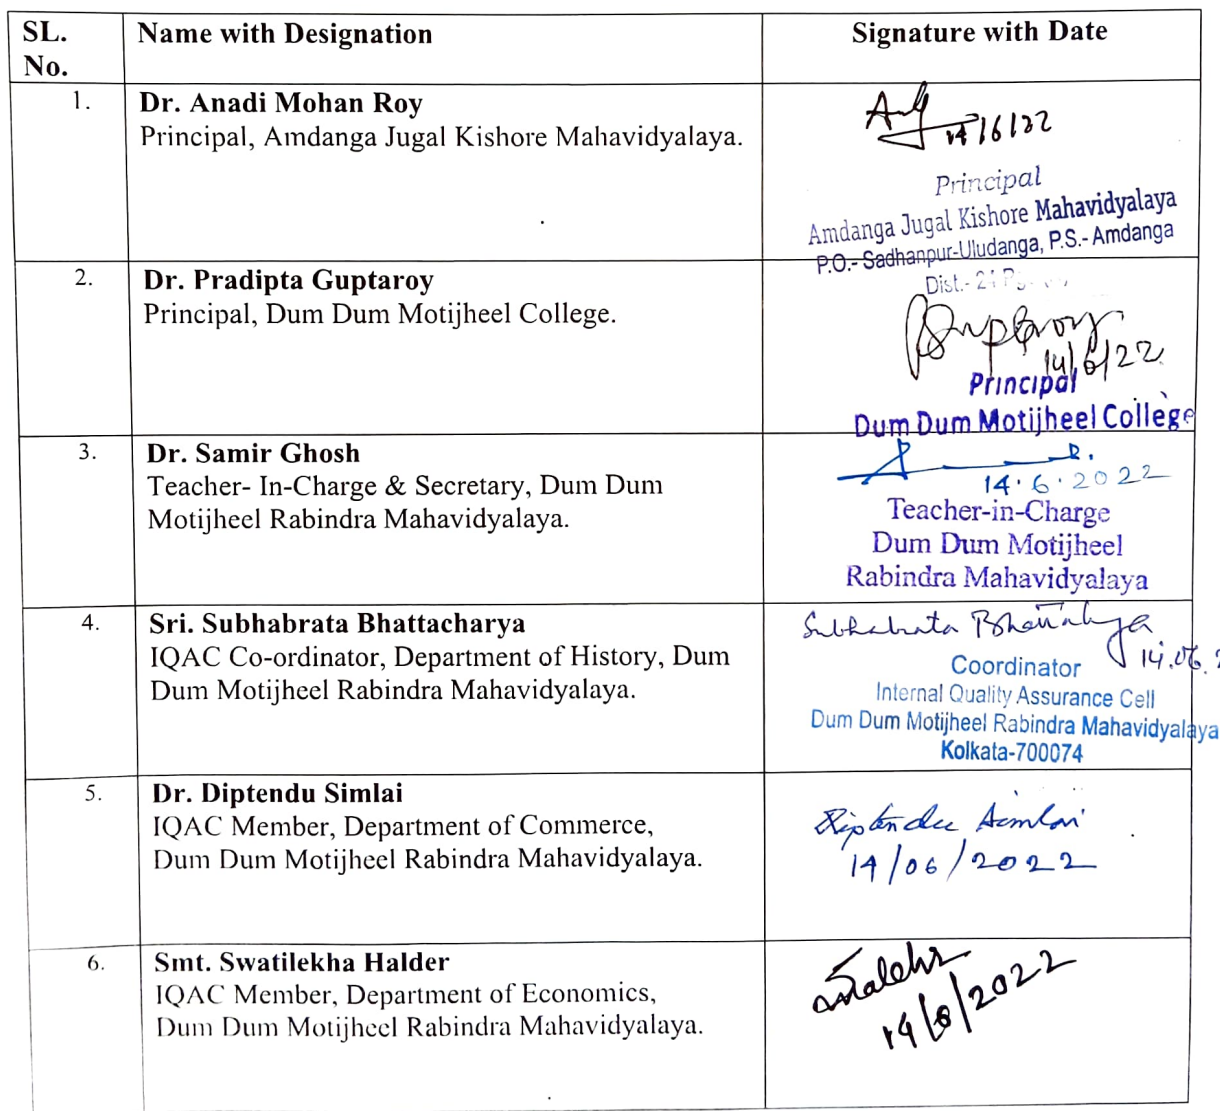 SL. No.
Name with Designation
Signature with Date
1.
Dr. Anadi Mohan Roy
Principal, Amdanga Jugal Kishore Mahavidyalaya.
14/6/22
Principal
Amdanga Jugal Kishore Mahavidyalaya
P.O.- Sadhanpur-Uludanga, P.S.- Amdanga
Dist.- 24
2.
Dr. Pradipta Guptaroy
Principal, Dum Dum Motijheel College.
14/6/22
Principal
Dum Dum Motijheel College
3.
Dr. Samir Ghosh
Teacher- In-Charge & Secretary, Dum Dum
Motijheel Rabindra Mahavidyalaya.
14.6.2022
Teacher-in-Charge
Dum Dum Motijheel
Rabindra Mahavidyalaya
4.
Sri. Subhabrata Bhattacharya
IQAC Co-ordinator, Department of History, Dum
Dum Motijheel Rabindra Mahavidyalaya.
Subhabrata
14.06.2
Coordinator
Internal Quality Assurance Cell
Dum Dum Motijheel Rabindra Mahavidyalaya
Kolkata-700074
5.
Dr. Diptendu Simlai
IQAC Member, Department of Commerce,
Dum Dum Motijheel Rabindra Mahavidyalaya.
Diptendu Simlai
14/06/2022
6.
Smt. Swatilekha Halder
IQAC Member, Department of Economics,
Dum Dum Motijheel Rabindra Mahavidyalaya.
14/6/2022